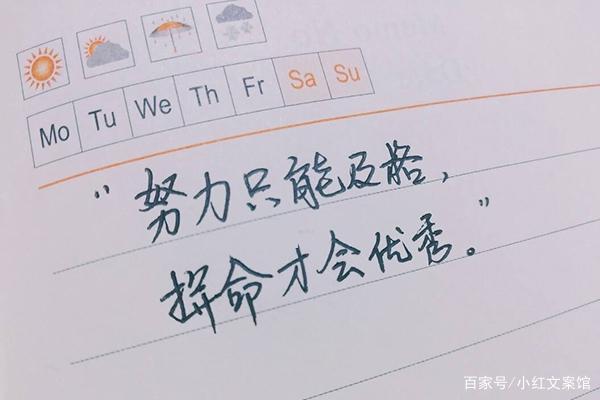 Mo Tu We Th Fr Sa Su
“努力只能及格，
拼命才会优秀。”
百家号/小红文案馆